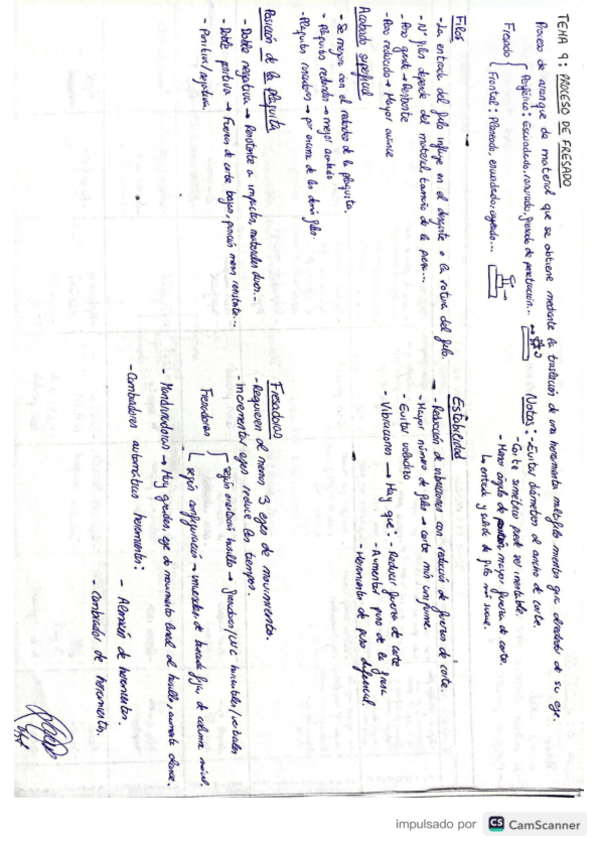 TEMA 9: PROCESO DE FRESADO
Proceso de arranque de material que se obtiene mediante la traslación de una herramienta multifilo mientras gira alrededor de su eje.
Fresado
Periférico: Escuadrado, ranurado, fresado de penetración...
Frontal: Planeado, escuadrado, cajeado...
Notas: - Evitar diámetros al ancho de corte.
- Corte simétrico puede ser inestable.
- Menor ángulo de posición, mayor fuerza de corte.
La entrada y salida de filo más suave.
Filos
- La entrada del filo influye en el desgaste o la rotura del filo.
- Nº filos depende del material, tamaño de la pieza...
- Paso grande → Desbaste
- Paso reducido → Mayor avance
Acabado superficial
- Se mejora con el redondeo de la plaquita.
- Plaquitas redondas → mejor acabado
- Plaquitas rascadoras → por encima de los demás filos.
Posición de la plaquita
- Doble negativa → Resistente a impactos, materiales duros...
- Doble positiva → Fuerzas de corte bajas, pero menos resistente...
- Positiva/negativa.
Estabilidad
- Reducción de vibraciones con reducción de fuerzas de corte.
- Mayor número de filos → corte más uniforme.
- Evitar voladizo
- Vibraciones → Hay que: - Reducir fuerza de corte
- Aumentar paso de la fresa
- Herramienta de paso diferencial.
Fresadoras
- Requieren al menos 3 ejes de movimiento.
- Incrementar ejes reduce los tiempos.
Fresadoras
según orientación husillo → horizontales/verticales
según configuración → de bancada fija, de columna móvil.
- Mandrinadoras → Muy grandes, eje de movimiento lineal del husillo, aumenta alcance.
- Cambiadores automáticos herramientas:
- Almacén de herramientas.
- Cambiador de herramientas.
impulsado por CS CamScanner